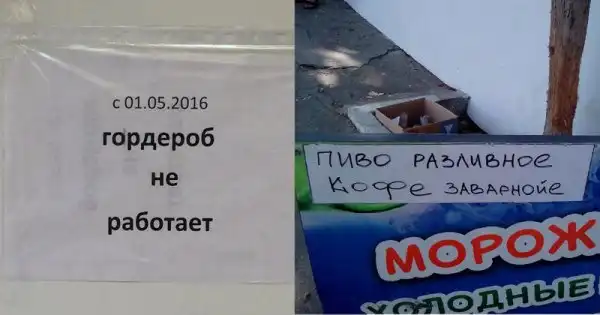 с 01.05.2016
гордероб
не
работает
ПИВО РАЗЛИВНОЕ
Кофе ЗАВАРНОЙЕ
МОРОЖ
ХОЛОДНЫЕ